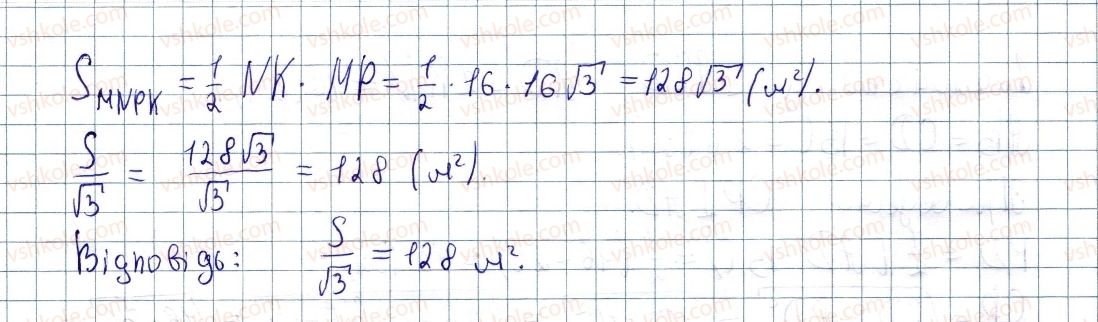 S_MNPK = 1/2 NK · MP = 1/2 · 16 · 16√3 = 128√3 (м²).
S/√3 = 128√3/√3 = 128 (м²).
Відповідь: S/√3 = 128 м².